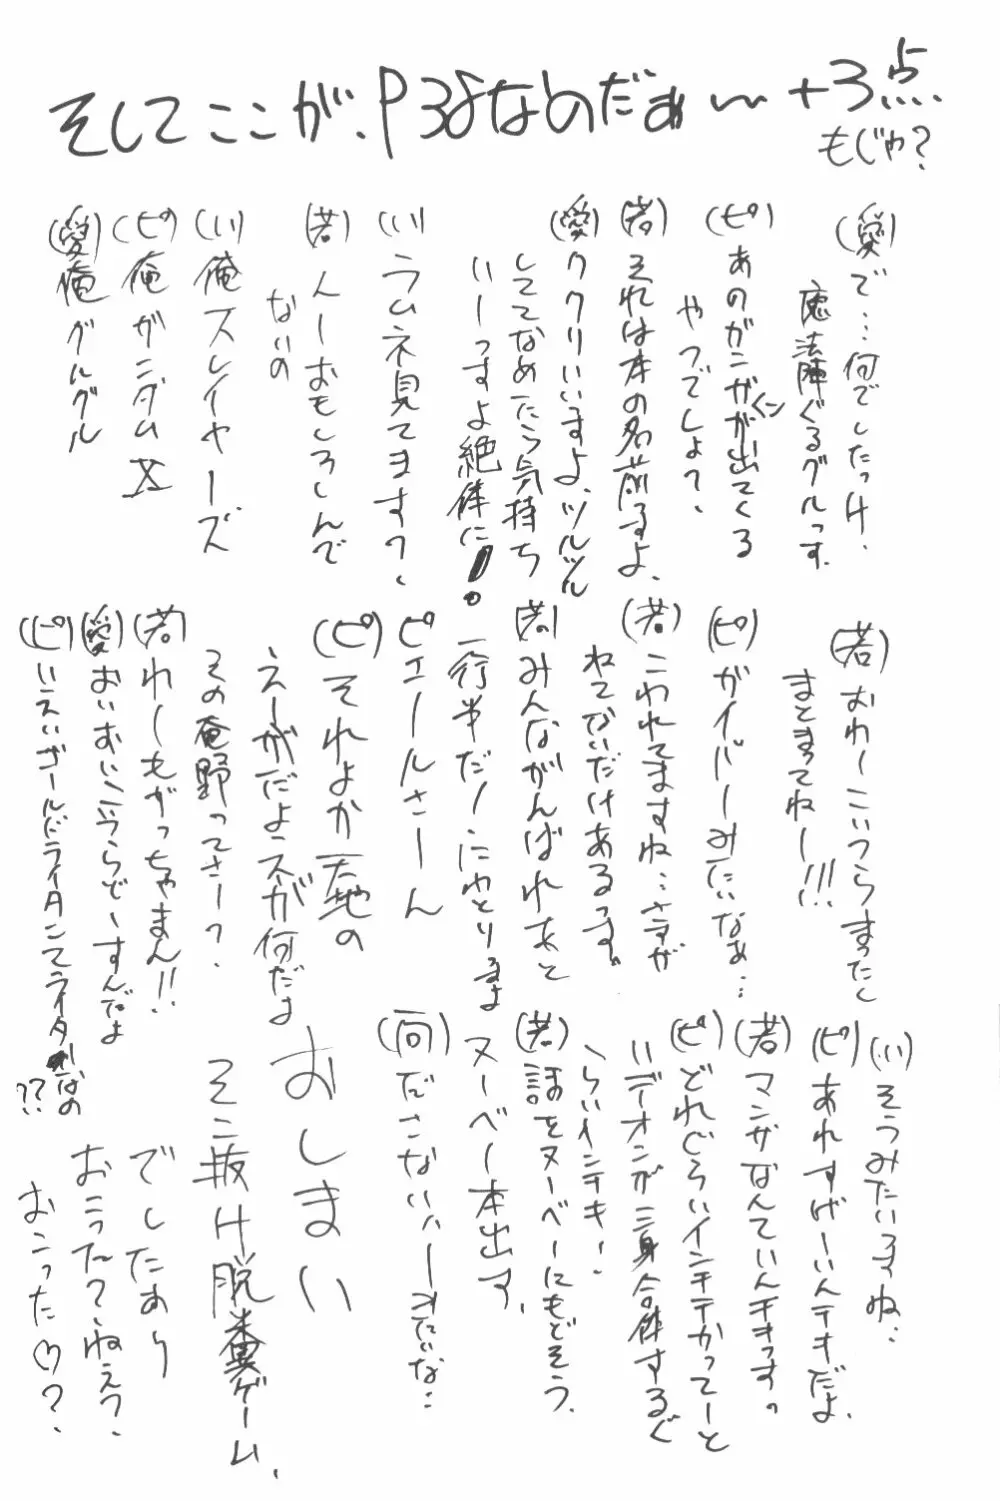 そしてここが、P38なのだぁ〜+3点
もじゃ?
(愛)で…何でしたっけ、
魔法陣ぐるグルっす。
(ピ)あのガンガンが出てくる
やつでしょ?、
(若)それは本の名前るよ、
(愛)ククリいいますよ、ツルツル
しててなめたら気持ち
いーっすよ絶体に!。
(い)ラムネ見てます?、
(若)人ーおもしろしんで
ないの
(い)俺スレイヤーズ
(ピ)俺ガンダムX
(愛)俺グルグル
(若)おわーこいつらまったく
まとまってねー!!!
(ピ)ガイバーみたいなぁ…
(若)こわれてますね…さすが
ねてないだけあるっす。
(若)みんながんばれあと
一行半だ!にわとりるよ
ピエールさーん
(ピ)それよか天地の
えーがだよスが何だよ
その庵野ってさー?、
(若)れーもがっちゃまん!!
(愛)おいおいこいうらどーすんだよ
(ピ)いえいゴールドライタンてライターなの
??
(い)そうみたいるすね…
(ピ)あれすげーいんテキだよ、
(若)マンガなんていんテキっす。
(ピ)どれぐらいインチテかってーと
イデオンが三身合体するぐ
らいインテキ!
(若)話をヌーベーにもどそう、
ヌーベー本出す、
(向)ださないハーきたいな…
おしまい
そこ抜け脱糞ゲーム、
でしたあり
おこった?、ねえ?、
おこった♡?、